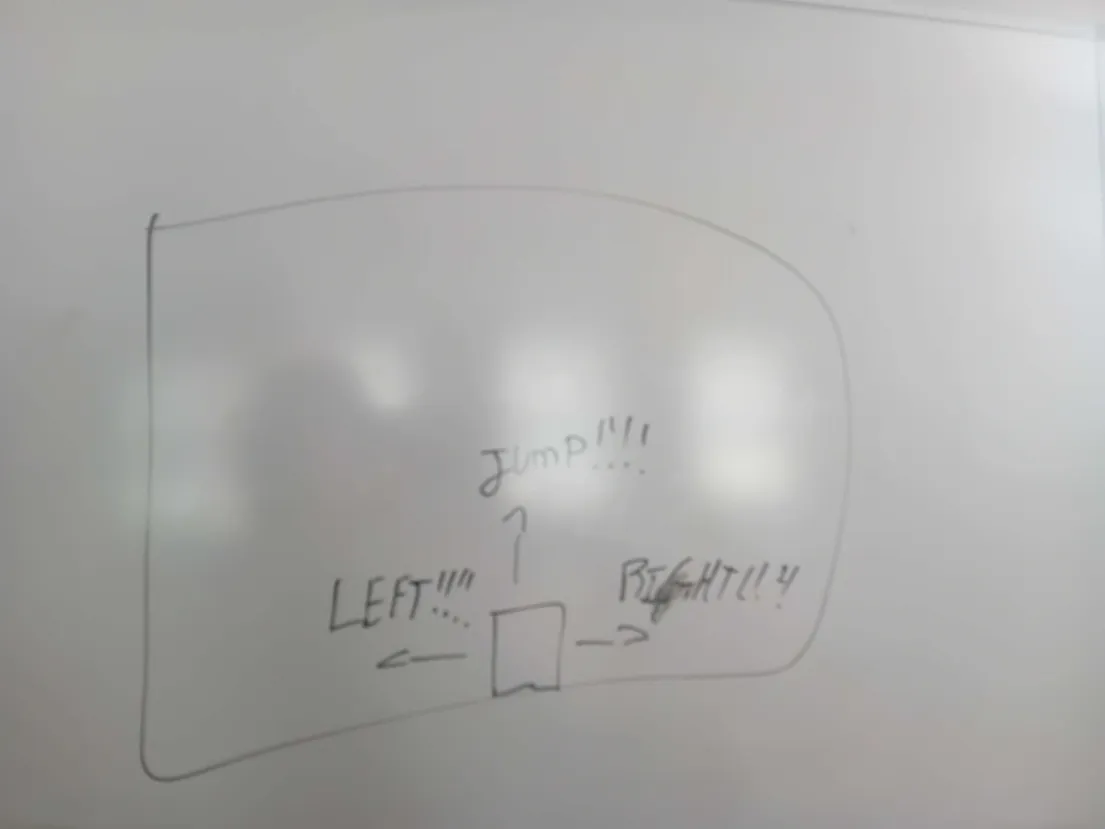 JUMP!!!!
LEFT!!!!
RIGHT!!!